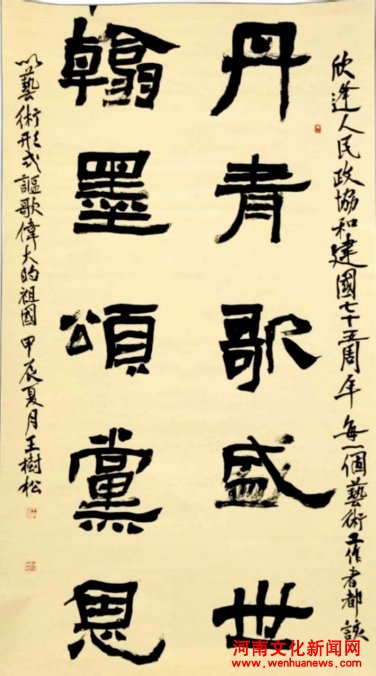 欣逢人民政協和建國七十五周年每一個藝術工作者都該
丹青歌盛世
翰墨頌黨恩
以藝術形式謳歌偉大的祖國甲辰夏月王樹松
河南文化新闻网
www.wenhuanews.com